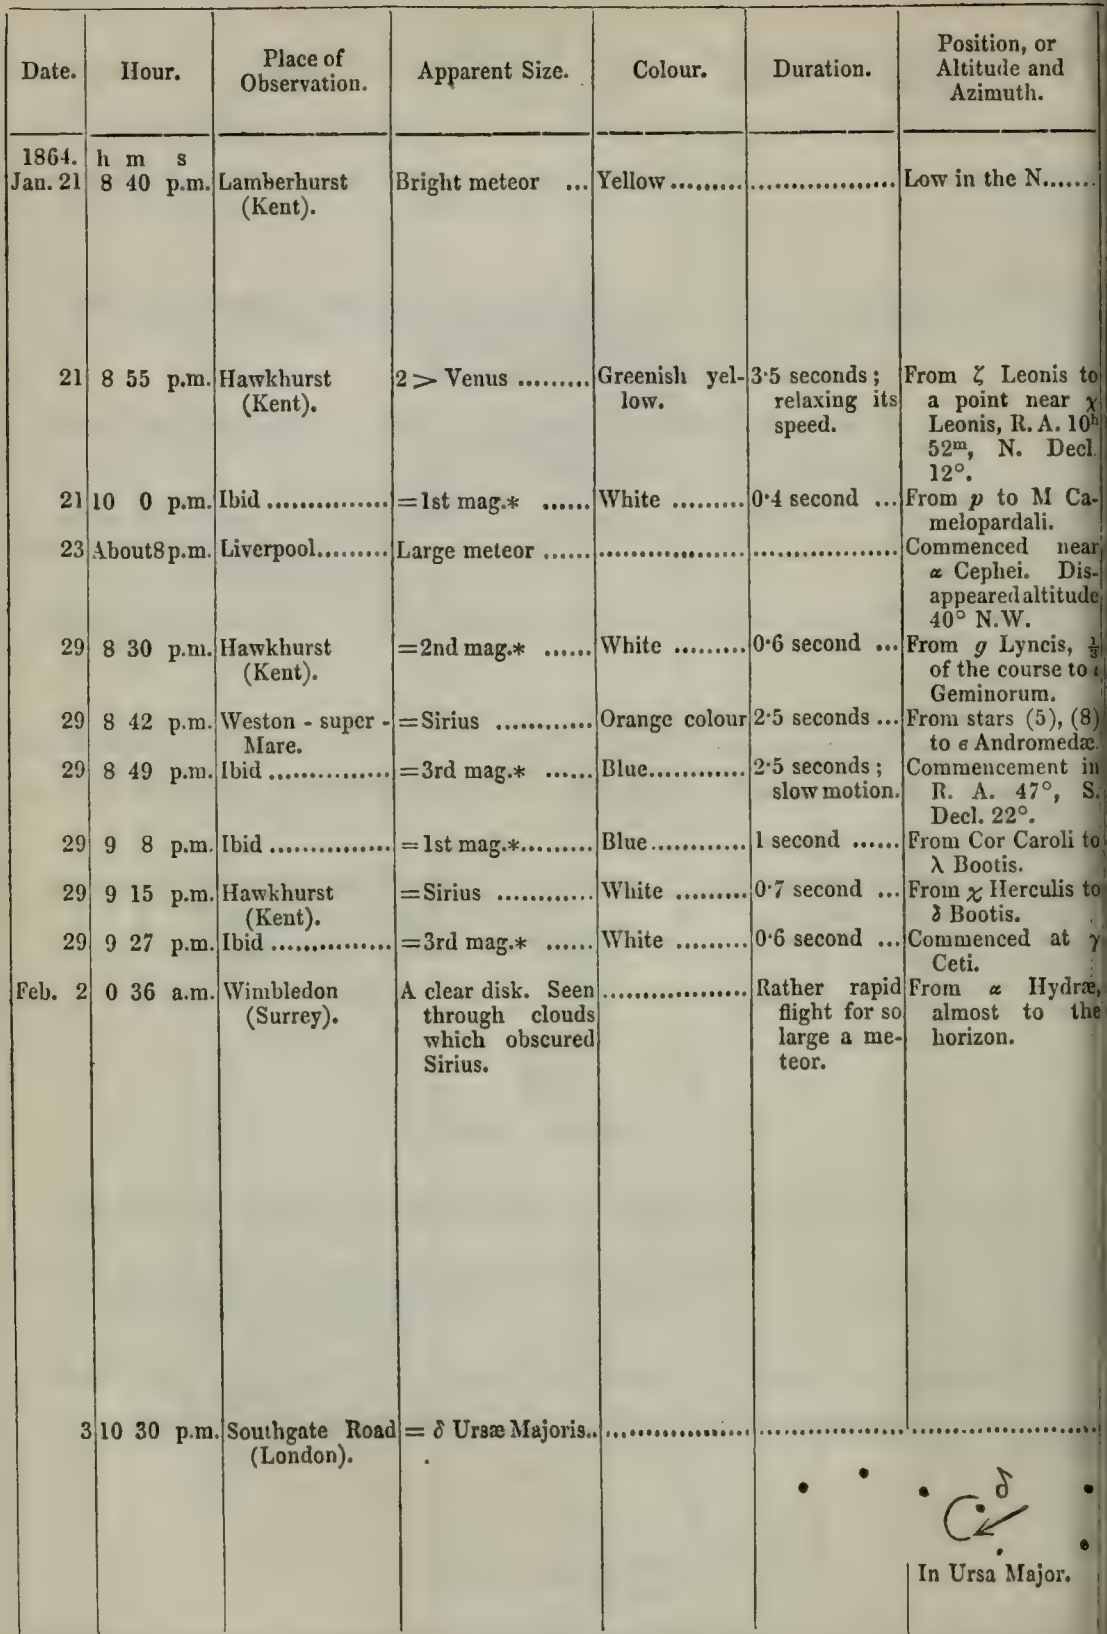 Date. Hour. Place of Observation. Apparent Size. Colour. Duration. Position, or Altitude and Azimuth.
1864. h m s
Jan. 21 8 40 p.m. Lamberhurst (Kent). Bright meteor ... Yellow ......... .................. Low in the N.......
21 8 55 p.m. Hawkhurst (Kent). 2 > Venus ......... Greenish yel-low. 3·5 seconds; relaxing its speed. From ζ Leonis to a point near χ Leonis, R. A. 10h 52m, N. Decl. 12°.
21 10 0 p.m. Ibid ............... =1st mag.* ...... White ......... 0·4 second ... From p to M Ca-melopardali.
23 About 8 p.m. Liverpool......... Large meteor ...... .................. .................. Commenced near α Cephei. Dis-appeared altitude 40° N.W.
29 8 30 p.m. Hawkhurst (Kent). =2nd mag.* ...... White ......... 0·6 second ... From g Lyncis, ⅓ of the course to ι Geminorum.
29 8 42 p.m. Weston - super - Mare. =Sirius ............ Orange colour 2·5 seconds ... From stars (5), (8) to ϵ Andromedæ.
29 8 49 p.m. Ibid ............... =3rd mag.* ...... Blue............ 2·5 seconds; slow motion. Commencement in R. A. 47°, S. Decl. 22°.
29 9 8 p.m. Ibid ............... =1st mag.*......... Blue............ 1 second ...... From Cor Caroli to λ Bootis.
29 9 15 p.m. Hawkhurst (Kent). =Sirius ............ White ......... 0·7 second ... From χ Herculis to δ Bootis.
29 9 27 p.m. Ibid ............... =3rd mag.* ...... White ......... 0·6 second ... Commenced at γ Ceti.
Feb. 2 0 36 a.m. Wimbledon (Surrey). A clear disk. Seen through clouds which obscured Sirius. .................. Rather rapid flight for so large a me-teor. From α Hydræ, almost to the horizon.
3 10 30 p.m. Southgate Road (London). = δ Ursæ Majoris.. .................. .................. ..................
δ
In Ursa Major.